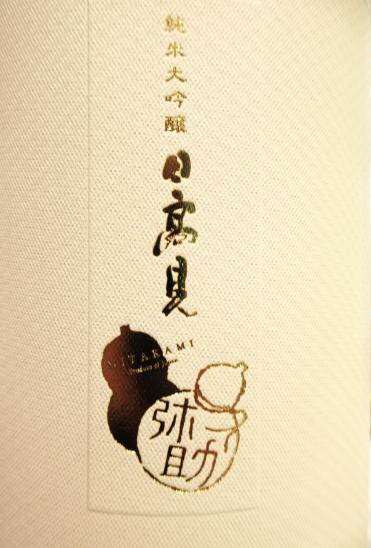 純米大吟醸
日高見
HITAKAMI
Product of Japan
弥助